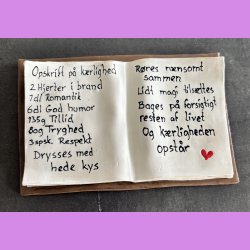 Opskrift på kærlighed
2 Hjerter i brand
7dl Romantik
6dl God humor
135g Tillid
80g Tryghed
3spsk. Respekt
Drysses med
hede kys
Røres nænsomt
sammen
Lidt magi tilsættes
Bages på forsigtigt
resten af livet
Og Kærligheden
opstår